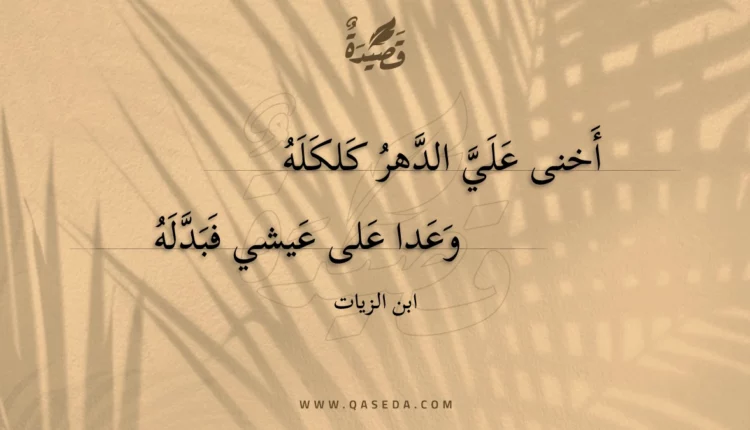 قَصِيْدَةٌ
أَخنى عَلَيَّ الدَّهرُ كَلكَلَهُ
وَعَدا عَلى عَيشي فَبَدَّلَهُ
ابن الزيات
WWW.QASEDA.COM